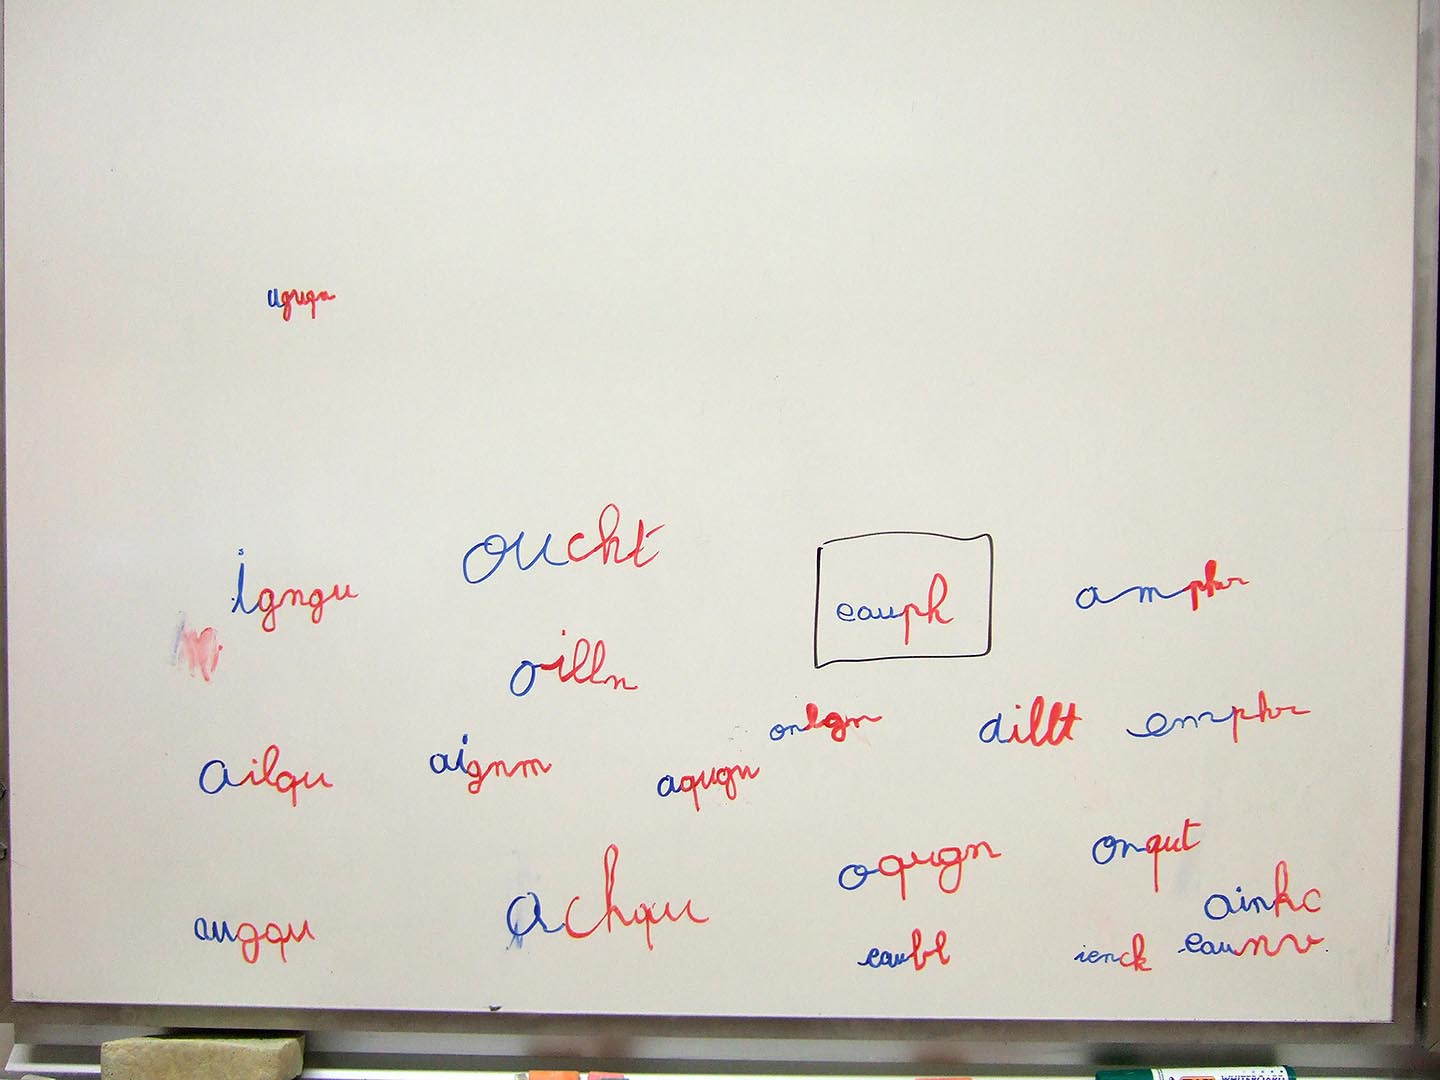 ougt
igngu
eauph
amphr
oilln
onlgn
dillt
emphr
ailqu
aignm
aqugn
oqugn
onqut
achqu
ainkc
augqu
eaubl
ienck
eaunv
WHITEBOARD